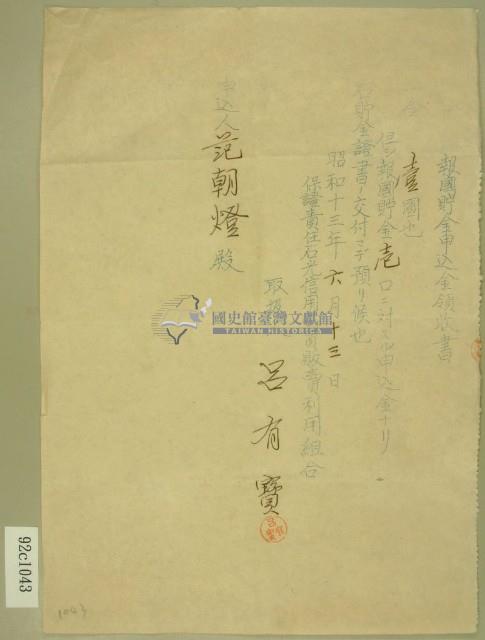 報國貯金申込金領收書
一金壹圓也
但シ報國貯金壱口ニ対スル申込金ナリ
右貯金證書ノ交付マデ預リ候也
昭和十三年六月十三日
保證責任石光信用 販賣利用組合
取扱
呂有寶
申込人 范朝燈 殿
國史館臺灣文獻館
TAIWAN HISTORICA
92c1043
1043